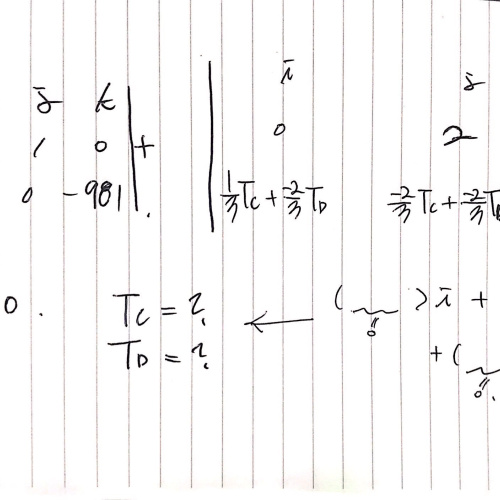 j k | | i j
1 0 | + | 0 2
0 -981 | . | 1/3 Tc + -2/3 TD -2/3 Tc + -2/3 T
0 . Tc = ? ← ( ) i +
0
TD = ? + (
0.